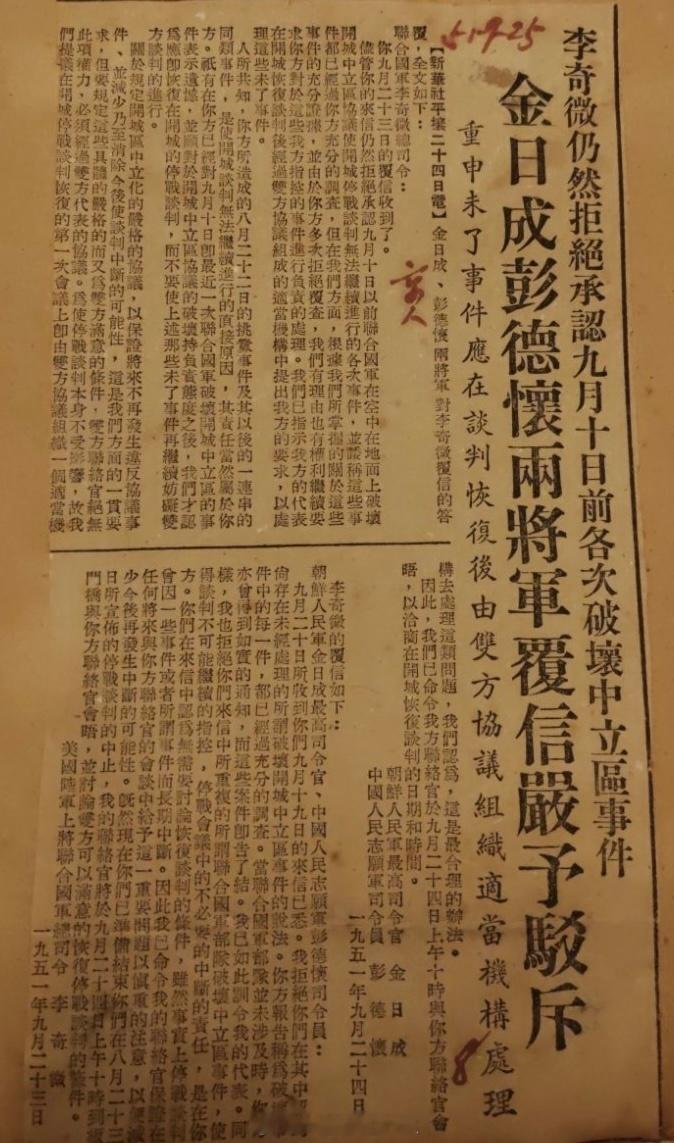 李奇微仍然拒絕承認九月十日前各次破壞中立區事件
金日成彭德懷兩將軍覆信嚴予駁斥
重申未了事件應在談判恢復後由雙方協議組織適當機構處理
51-9-25
【新華社平壤二十四日電】金日成、彭德懷兩將軍對李奇微覆信的答
覆,全文如下:
聯合國軍李奇微總司令:
你九月二十三日的覆信收到了。
儘管你的來信仍然拒絕承認九月十日以前聯合國軍在空中在地面上破壞
開城中立區協議使開城停戰談判無法繼續進行的各次事件,並謊稱這些事
件都已經過你方充分的調查,但在我們方面,根據我們所掌握的關於這些
事件的充分證據,並由於你方多次拒絕覆查,我們有理由也有權利繼續要
求你方對於這些我方指控的事件進行負責的處理。我們已指示我方的代表
在開城恢復談判後經過雙方協議組成的適當機構中提出我方的要求,以處
理這些未了事件。
人所共知,你方所造成的八月二十二日的挑釁事件及其以後的一連串的
同類事件,是使開城談判無法繼續進行的直接原因,其責任當然屬於你
方。祇有在你方已經對九月十日即最近一次聯合國軍破壞開城中立區的事
件表示遺憾,並願對於開城中立區協議的破壞持負責態度之後,我們才認
為應即恢復在開城的停戰談判,而不要使上述那些未了事件再繼續妨礙雙
方談判的進行。
關於規定開城區中立化的嚴格的協議,以保證將來不再發生違反協議事
件、並減少乃至消除今後使談判中斷的可能性,這是我們方面的一貫要
求,但要規定這些具體的嚴格的而又為雙方滿意的條件,雙方聯絡官絕無
此項權力,必須經過雙方代表的協議。為使停戰談判本身不受影響,故我
們提議在開城停戰談判恢復的第一次會議上即由雙方協議組織一個適當機
構去處理這類問題,我們認為,這是最合理的辦法。
因此,我們已命令我方聯絡官於九月二十四日上午十時與你方聯絡官會
晤,以洽商在開城恢復談判的日期和時間。
朝鮮人民軍最高司令官 金日成
中國人民志願軍司令員 彭德懷
一九五一年九月二十四日
8
李奇微的覆信如下:
朝鮮人民軍金日成最高司令官、中國人民志願軍彭德懷司令員:
九月二十日所收到你們九月十九日的來信已悉。我拒絕你們在其中認為
尚存在未經處理的所謂破壞開城中立區事件的說法。你方報告稱為破壞事
件中的每一件,都已經過充分的調查。當聯合國軍部隊並未涉及時,你方
亦曾得到如實的通知,而這些案件即告了結。我已如此訓令我的代表。同
樣,我也拒絕你們來信中所重複的所謂聯合國軍部隊破壞中立區事件,使
得談判不可能繼續的指控,停戰會議中的不必要的中斷的責任,是在你
方。你們在來信中認為無需要討論恢復談判的條件,雖然事實上停戰談判
曾因一些事件或者所謂事件而長期中斷。因此我已命令我的聯絡官保證在
任何將來與你方聯絡官的會談中給予這一重要問題以慎重的注意,以便減
少今後再發生中斷的可能性。既然現在你們已準備結束你們在八月二十三
日所宣佈的停戰談判的中止,我的聯絡官將於九月二十四日上午十時到板
門橋與你方聯絡官會晤,並討論雙方可以滿意的恢復停戰談判的條件。
美國陸軍上將聯合國軍總司令 李奇微
一九五一年九月二十三日